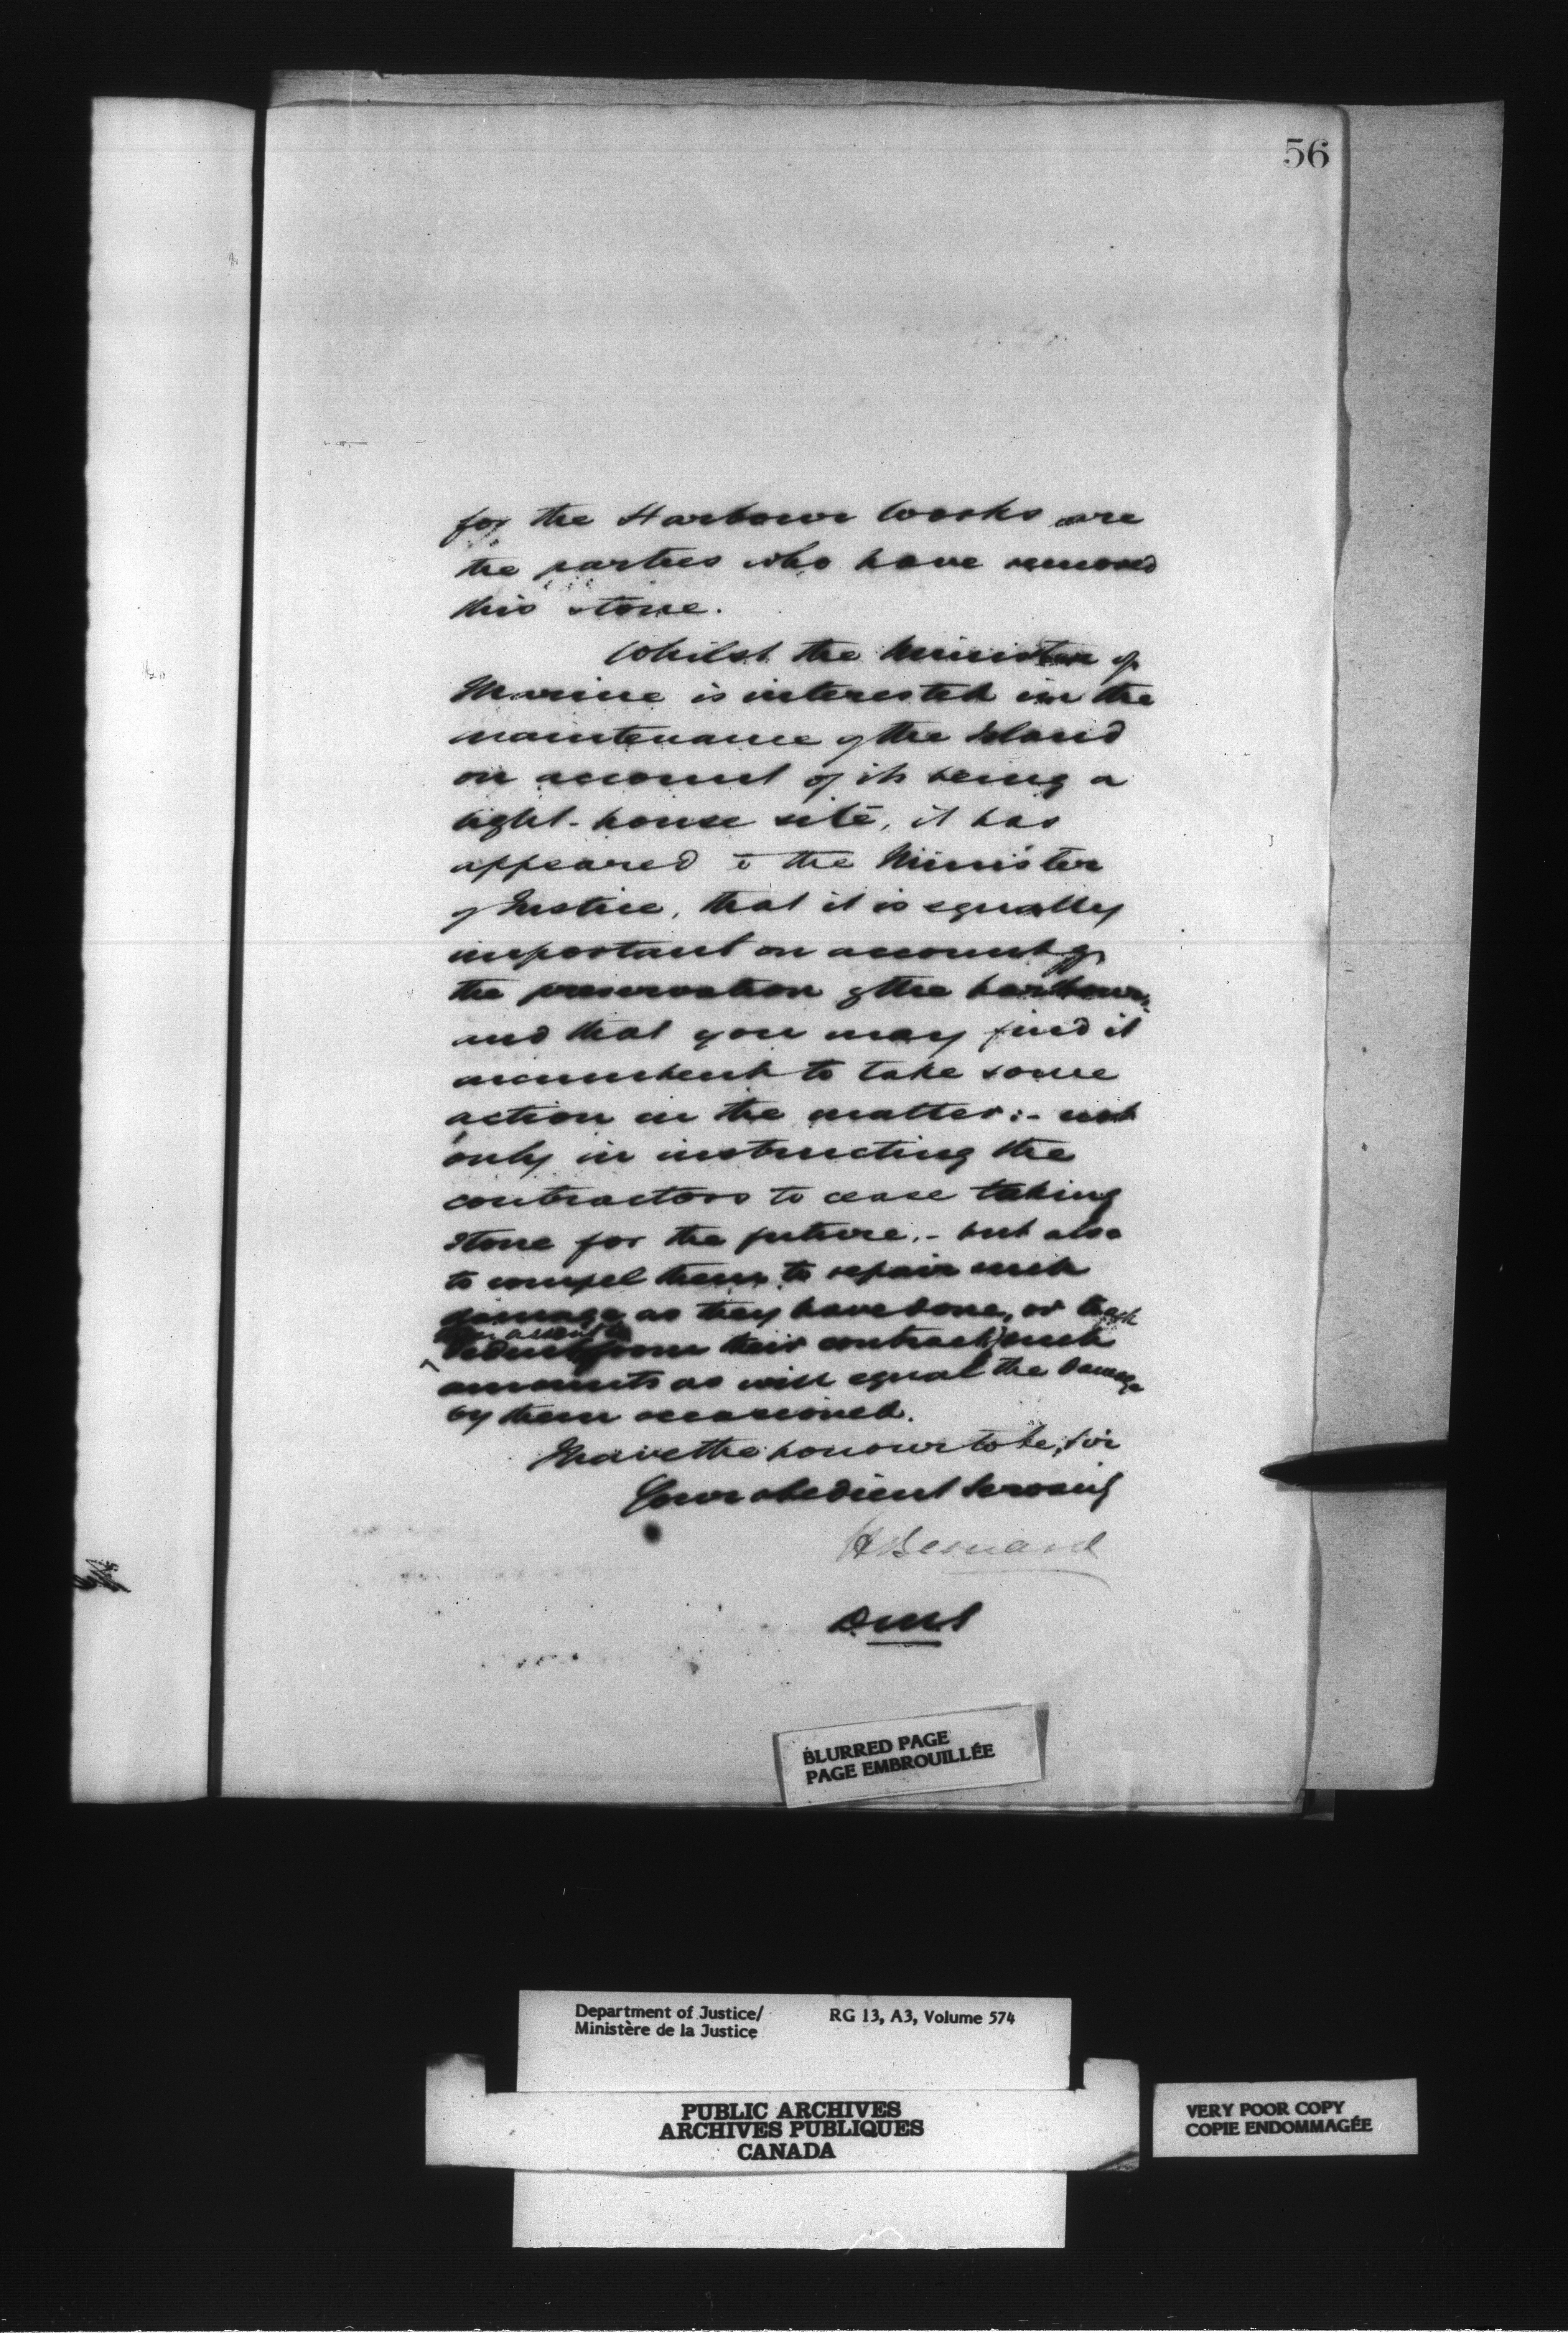 56
for the Harbour works are
the parties who have removed
this stone.
Whilst the Minister of
Marine is interested in the
maintenance of the Island
on account of its being a
light-house site, it has
appeared to the Minister
of Justice, that it is equally
important on account of
the preservation of the harbour,
and that you may find it
incumbent to take some
action in the matter:- not
only in instructing the
contractors to cease taking
stone for the future,- but also
to compel them to repair such
damage as they have done, or
deduct from their contract such
amounts as will equal the damage
by them occasioned.
I have the honour to be, Sir
Your obedient Servant
H Bernard
DMJ
BLURRED PAGE
PAGE EMBROUILLÉE
Department of Justice/ RG 13, A3, Volume 574
Ministère de la Justice
PUBLIC ARCHIVES
ARCHIVES PUBLIQUES
CANADA
VERY POOR COPY
COPIE ENDOMMAGÉE